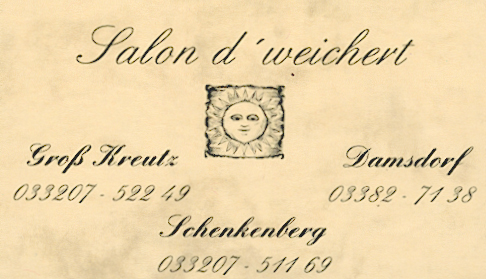 Salon d´weichert
Groß Kreutz
033207 - 522 49
Damsdorf
03382 - 71 38
Schenkenberg
033207 - 511 69